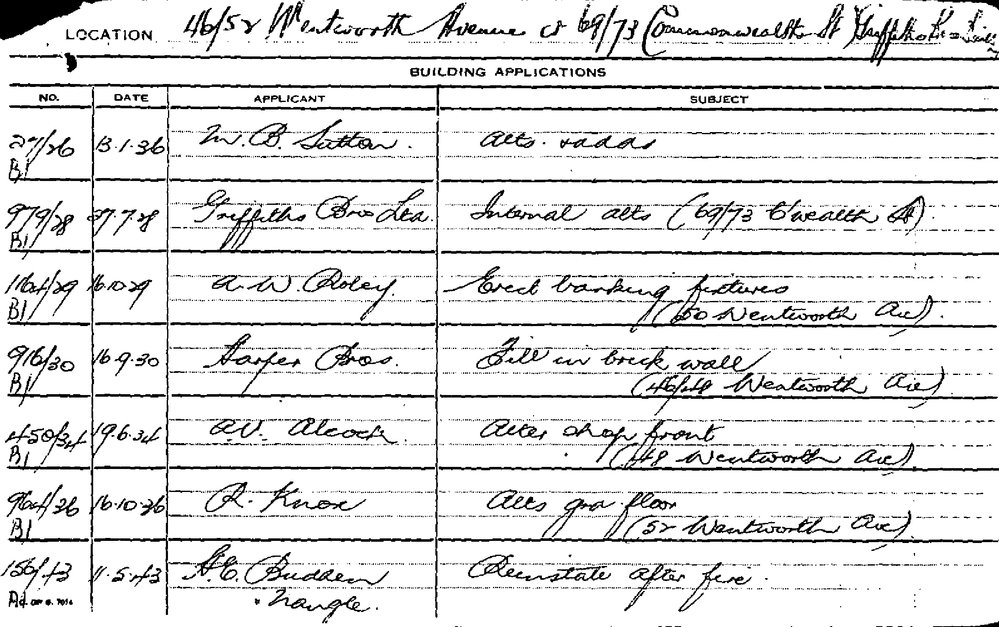 LOCATION 46/52 Wentworth Avenue & 69/73 Commonwealth St Griffiths
BUILDING APPLICATIONS
NO. DATE APPLICANT SUBJECT
27/26 13.1.26 M. B. Sutton. Alts. & adds
B1
979/28 27.7.28 Griffiths Bros Ltd. Internal alts (69/73 C'wealth St).
B1
1164/29 16.10.29 A. W. Roley. Erect banking fixtures
B1 (50 Wentworth Ave).
916/30 16.9.30 Harper Bros. Fill in brick wall
B1 (46/48 Wentworth Ave)
450/34 19.6.34 A.V. Alcock. Alter shop front
B1 (48 Wentworth Ave).
964/36 16.10.36 R. Knox Alts gra floor
B1 (52 Wentworth Ave).
156/43 11.5.43 H.E. Budden Reinstate after fire.
Ad. & Nangle.